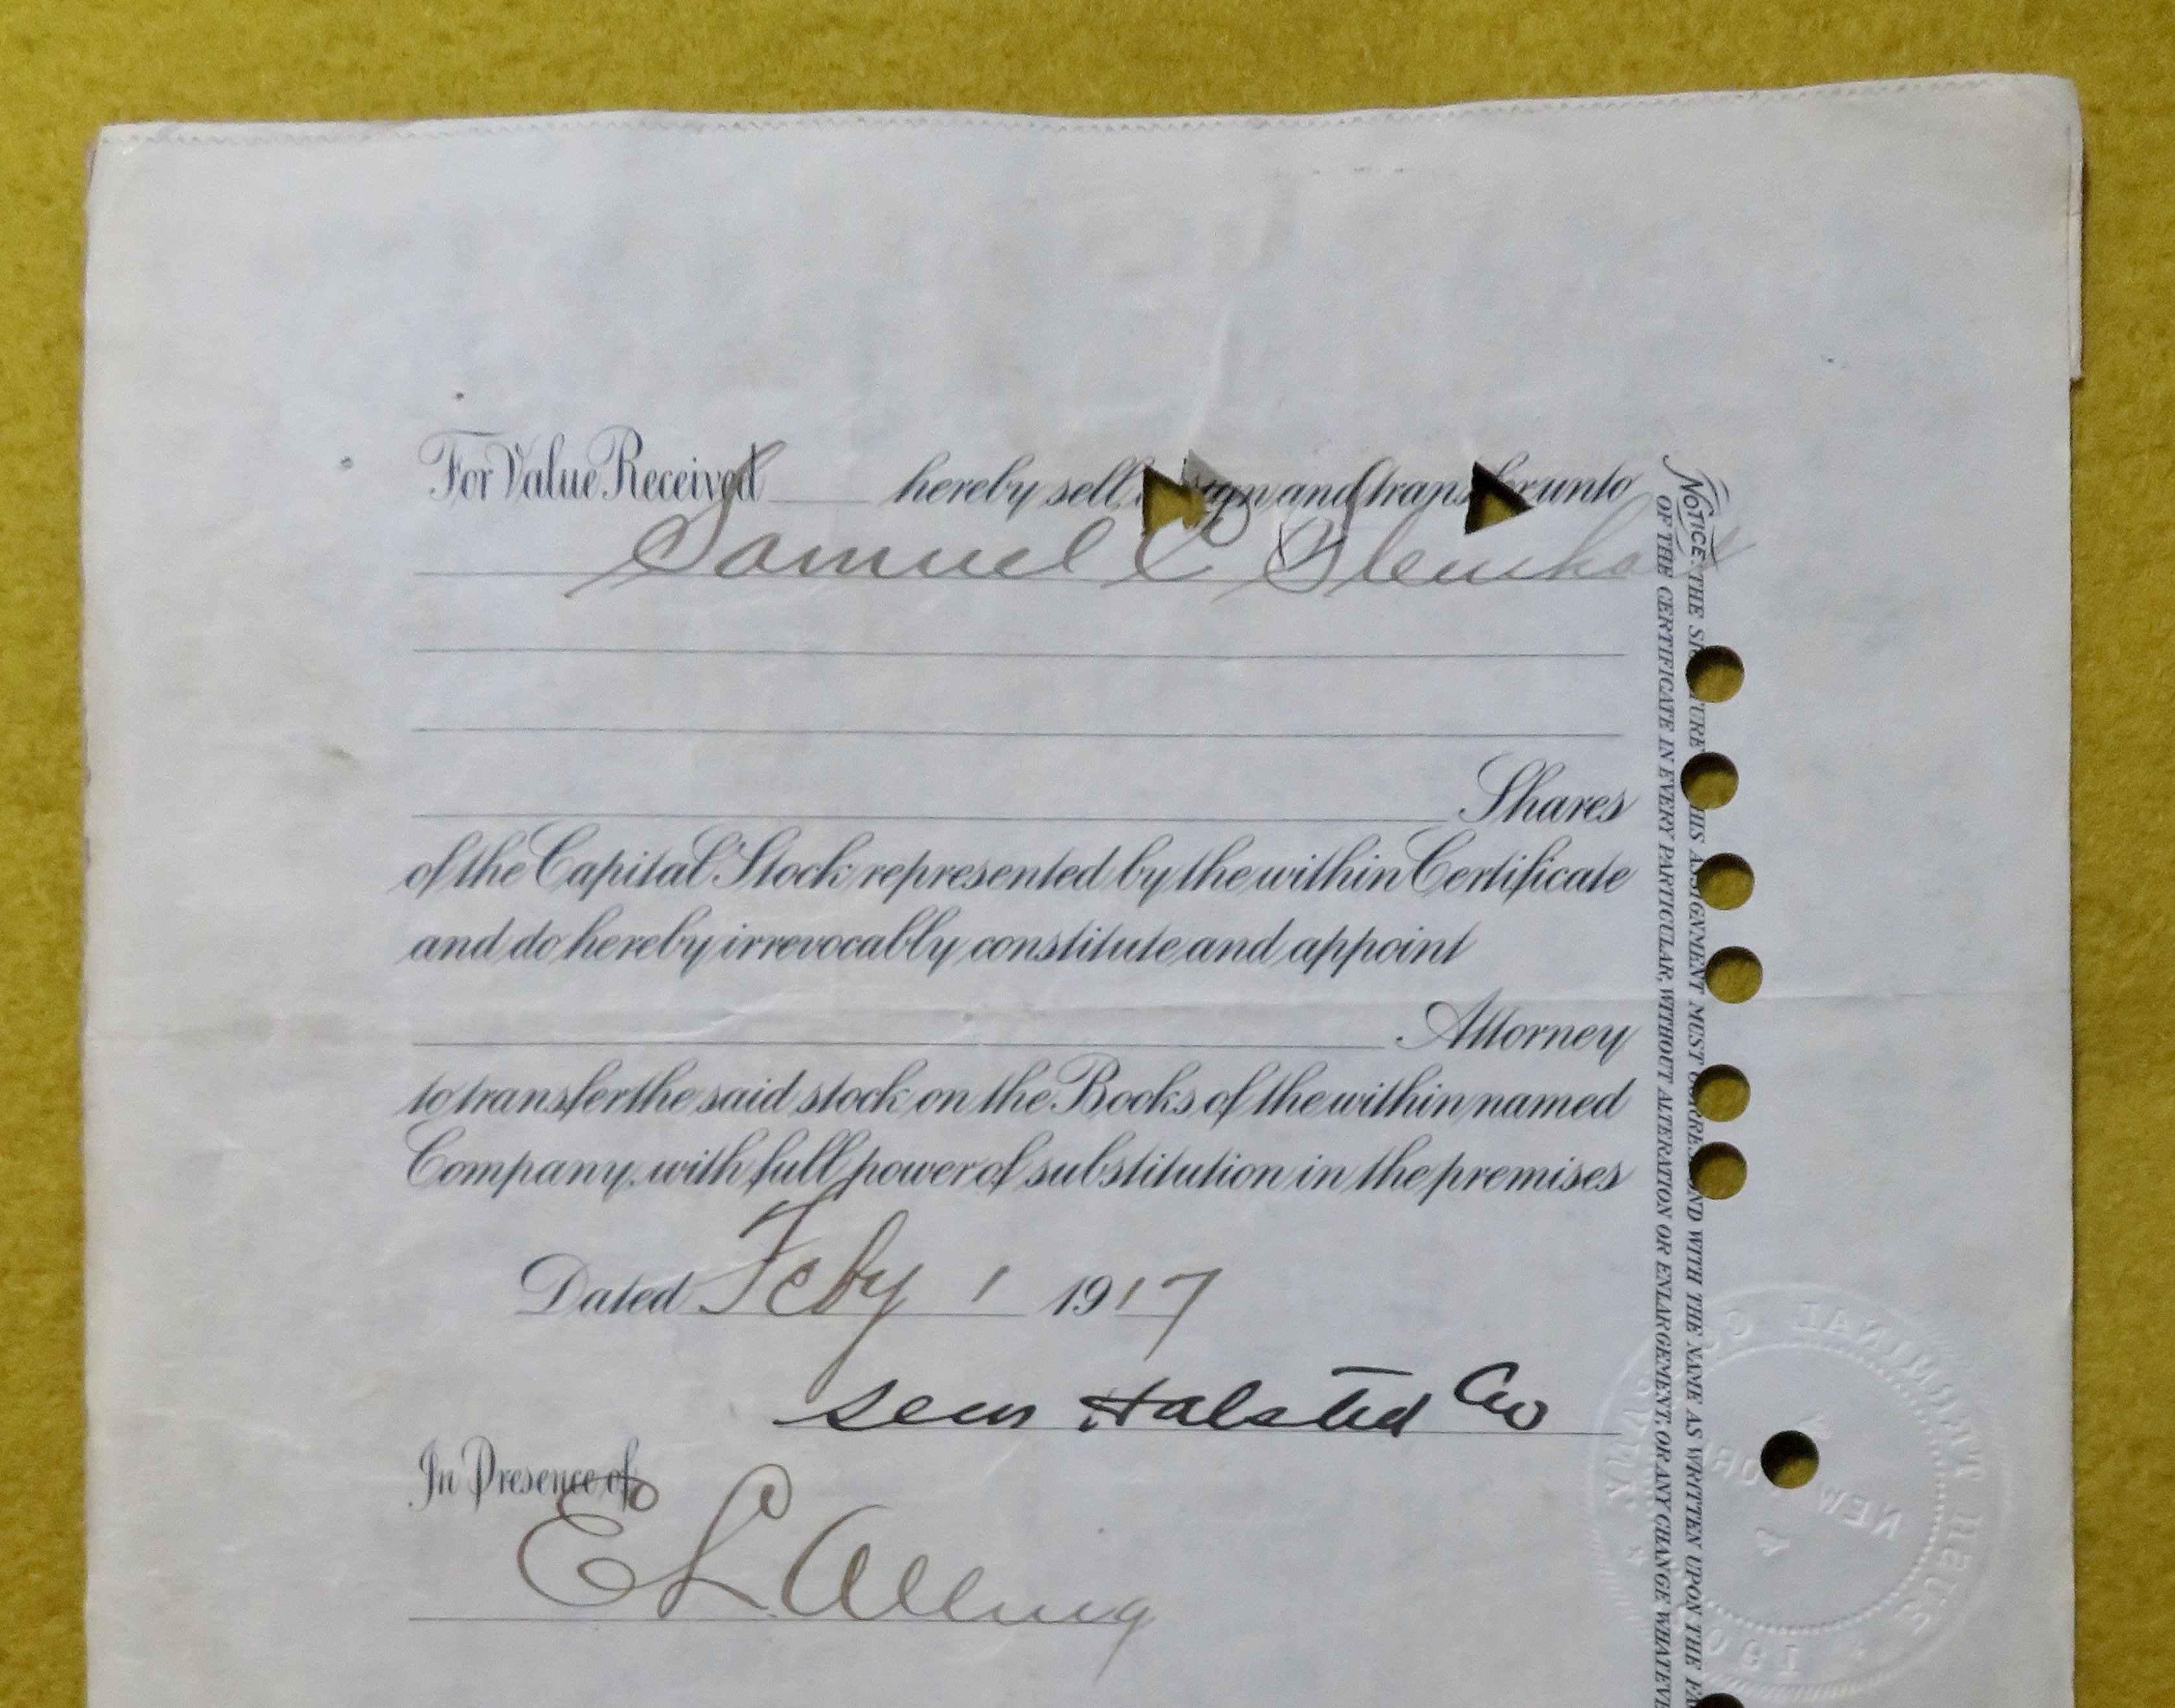 For Value Received hereby sell, assign and transfer unto
Samuel C
Shares
of the Capital Stock represented by the within Certificate
and do hereby irrevocably constitute and appoint
Attorney
to transfer the said stock on the Books of the within named
Company, with full power of substitution in the premises
Dated Feby 1 1917
Halsted Co
In Presence of
E L Alling
NOTICE: THE SIGNATURE THIS ASSIGNMENT MUST CORRESPOND WITH THE NAME AS WRITTEN UPON THE
OF THE CERTIFICATE IN EVERY PARTICULAR, WITHOUT ALTERATION OR ENLARGEMENT, OR ANY CHANGE WHATEVE
TERMINAL COMPANY
NEW YORK